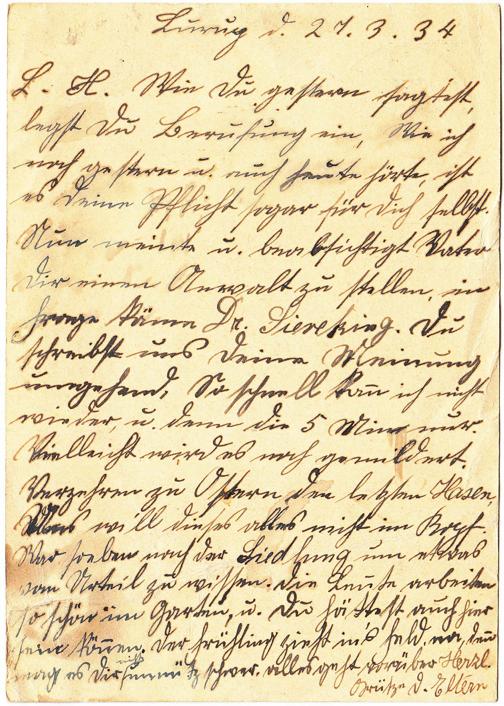 Lurup d. 27.3.34
L. H. Wie Du gestern sagtest,
legst Du Berufung ein, Wie ich
noch gestern u. auch heute hörte, ist
es deine Pflicht sogar für dich selbst.
Nun meinte u. beabsichtigt Vater
dir einen Anwalt zu stellen, in
frage käme Dr. Sieveking. Du
schreibst uns deine Meinung
umgehend, So schnell kan ich nicht
wieder, u. denn die 5 Min nur
Vielleicht wird es noch gemildert.
Verzehren zu Ostern den letzten Hasen
Uns will dieses alles nicht im Kopf.
War soeben nach der Siedlung um etwas
vom Urteil zu wissen. die Leute arbeiten
so schön im Garten, u. Du hättest auch hier
sein können. Der frühling zieht in's feld, na, denn
mag es dir nicht unnütz schwer. alles geht vorüber Herzl.
Grüße d. Eltern